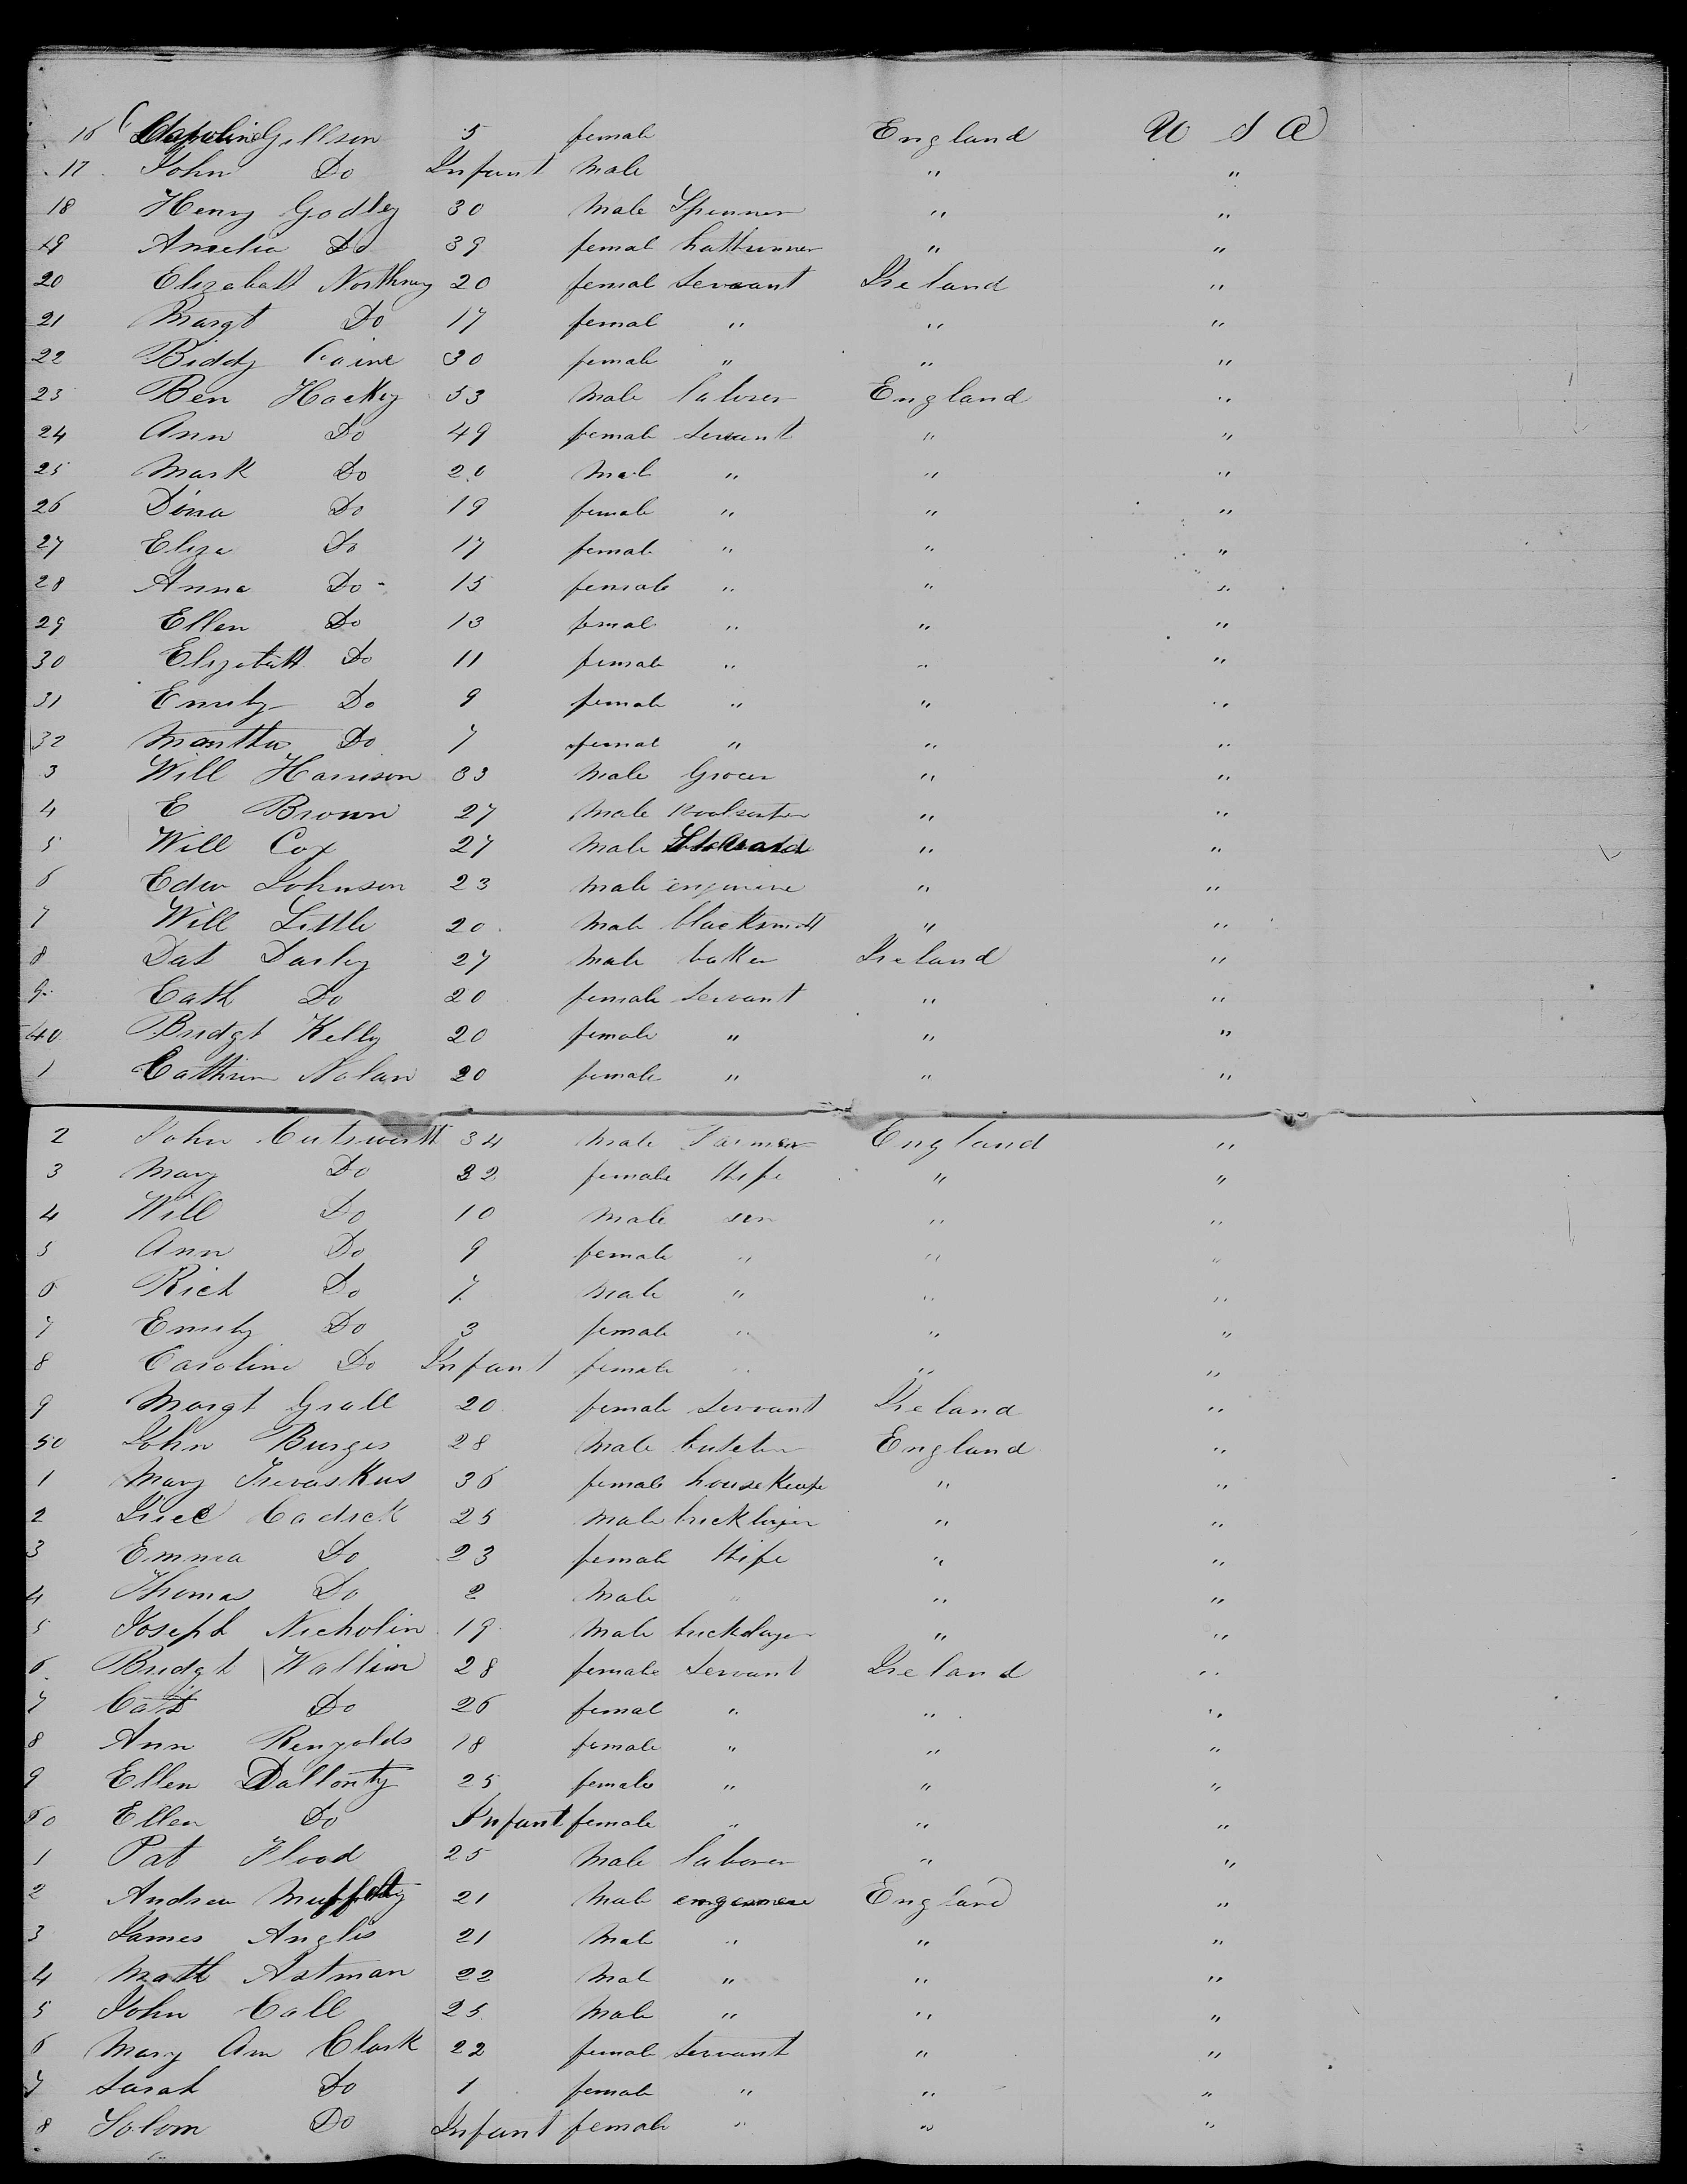 16 Caroline Gillson 5 female England U S A
17 John Do Infant Male " "
18 Henry Godley 30 Male Spinner " "
19 Amelia Do 39 femal hattrimer " "
20 Elizabatt Northray 20 femal Servant Ireland "
21 Margt Do 17 femal " " "
22 Biddy Caine 30 female " " "
23 Ben Hockey 53 Male laborer England "
24 Ann Do 49 female Servant " "
25 Mark Do 20 Male " " "
26 Dina Do 19 female " " "
27 Eliza Do 17 female " " "
28 Anna Do - 15 female " " "
29 Ellen Do 13 femal " " "
30 Elizabett Do 11 female " " "
31 Emily Do 9 female " " "
32 Martha Do 7 femal " " "
3 Will Harrison 33 Male Grocer " "
4 E Brown 27 Male Woolsorter " "
5 Will Cox 27 Male " "
6 Edw Johnson 23 Male engineer " "
7 Will Little 20 Male blacksmitt " "
8 Pat Darley 27 Male baker Ireland "
9 Cath Do 20 female Servant " "
40 Bridgt Kelly 20 female " " "
1 Cathrin Nolan 20 female " " "
2 John Cutswortt 34 Male Farmer England "
3 Mary Do 32 female Wife " "
4 Will Do 10 Male son " "
5 Ann Do 9 female " " "
6 Rich Do 7 Male " " "
7 Emily Do 3 female " " "
8 Caroline Do Infant female " " "
9 Margt Grall 20 female Servant Ireland "
50 John Burges 28 Male butcher England "
1 Mary Trevaskus 36 female housekeepe " "
2 Cadick 25 Male bricklayer " "
3 Emma Do 23 female Wife " "
4 Thomas Do 2 Male " " "
5 Joseph Nicholin 19 Male bricklayer " "
6 Bridgt Wallim 28 female Servant Ireland "
7 Cath Do 26 femal " " "
8 Ann Renyolds 18 female " " "
9 Ellen Dallonty 25 female " " "
60 Ellen Do Infant female " " "
1 Pat Flood 25 Male laborer " "
2 Andrew 21 Male engineer England "
3 James Anglis 21 Male " " "
4 Matt Astman 22 Male " " "
5 John Call 25 Male " " "
6 Mary Ann Clark 22 female Servant " "
7 Sarah Do 1 female " " "
8 Solom Do Infant female " " "